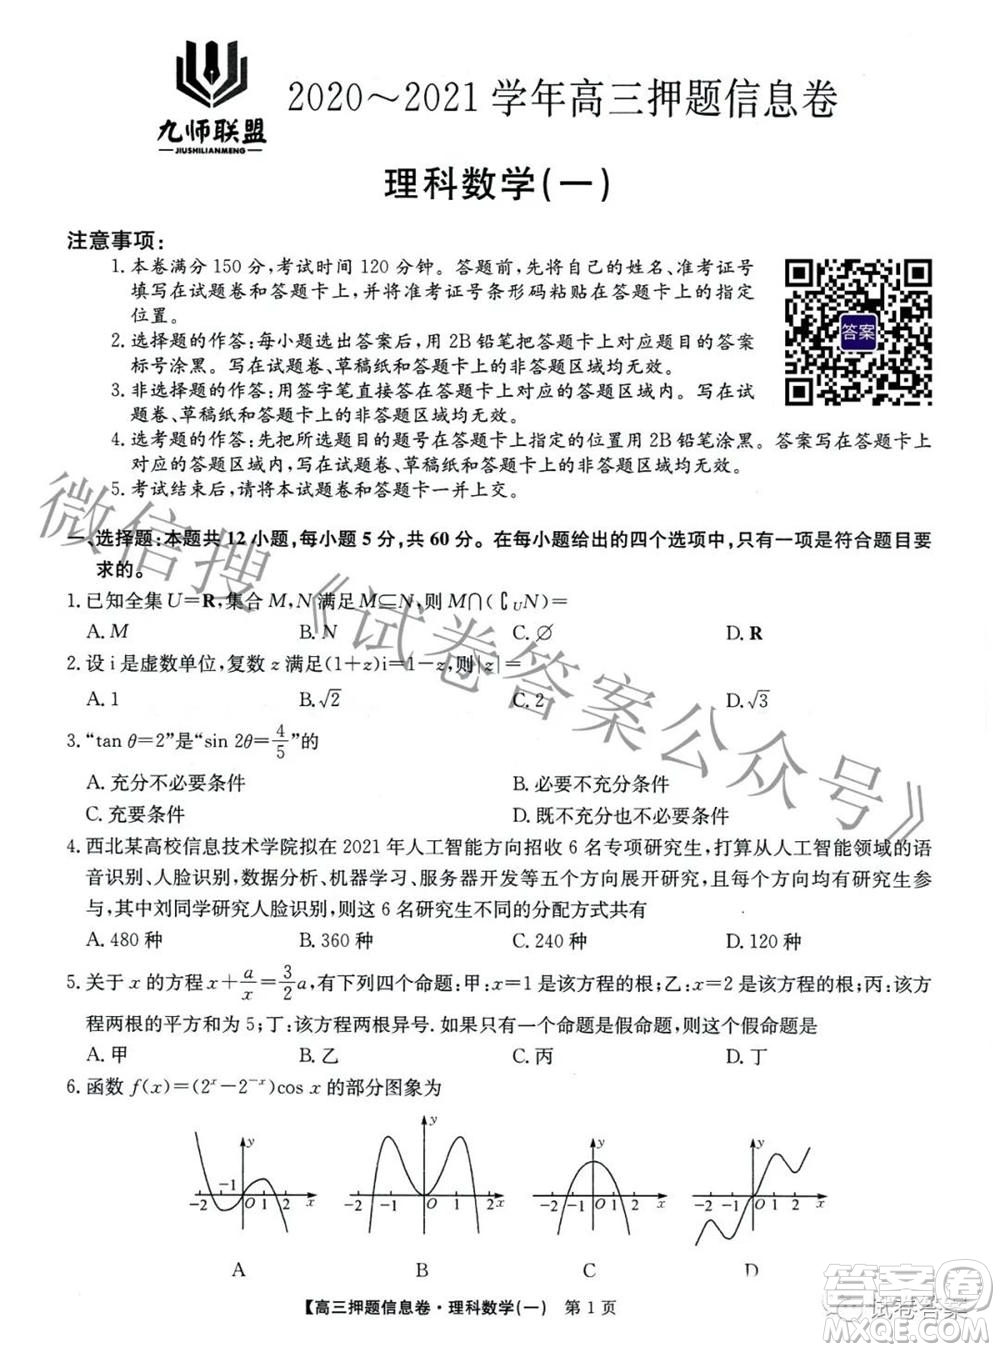 九师联盟
JIUSHILIANMENG
2020～2021学年高三押题信息卷
理科数学(一)
注意事项：
1. 本卷满分 150 分，考试时间 120 分钟。答题前，先将自己的姓名、准考证号
填写在试题卷和答题卡上，并将准考证号条形码粘贴在答题卡上的指定
位置。
2. 选择题的作答：每小题选出答案后，用 2B 铅笔把答题卡上对应题目的答案
标号涂黑。写在试题卷、草稿纸和答题卡上的非答题区域均无效。
3. 非选择题的作答：用签字笔直接答在答题卡上对应的答题区域内。写在试
题卷、草稿纸和答题卡上的非答题区域均无效。
答案
4. 选考题的作答：先把所选题目的题号在答题卡上指定的位置用 2B 铅笔涂黑。答案写在答题卡上
对应的答题区域内，写在试题卷、草稿纸和答题卡上的非答题区域均无效。
5. 考试结束后，请将本试题卷和答题卡一并上交。
一、选择题：本题共 12 小题，每小题 5 分，共 60 分。在每小题给出的四个选项中，只有一项是符合题目要
求的。
1. 已知全集 U=R，集合 M,N 满足 M⊆N，则 M∩(∁UN)=
A. M B. N C. ∅ D. R
2. 设 i 是虚数单位，复数 z 满足(1+z)i=1-z，则|z|=
A. 1 B. √2 C. 2 D. √3
3. “tan θ=2”是“sin 2θ=4/5”的
A. 充分不必要条件 B. 必要不充分条件
C. 充要条件 D. 既不充分也不必要条件
4. 西北某高校信息技术学院拟在 2021 年人工智能方向招收 6 名专项研究生，打算从人工智能领域的语
音识别、人脸识别，数据分析、机器学习、服务器开发等五个方向展开研究，且每个方向均有研究生参
与，其中刘同学研究人脸识别，则这 6 名研究生不同的分配方式共有
A. 480 种 B. 360 种 C. 240 种 D. 120 种
5. 关于 x 的方程 x+a/x=3/2a，有下列四个命题：甲：x=1 是该方程的根；乙：x=4 是该方程的根；丙：该方
程两根的平方和为 5；丁：该方程两根异号. 如果只有一个命题是假命题，则这个命题是
A. 甲 B. 乙 C. 丙 D. 丁
6. 函数 f(x)=(2^x-2^-x)cos x 的部分图象为
y y y y
-2 -1 O 1 2 x -2 -1 O 1 2 x -2 -1 O 1 2 x -2 -1 O 1 2 x
A B C D
【高三押题信息卷·理科数学(一) 第 1 页
微信搜《试卷答案公众号》
试卷答案
答案圈
MXQE.COM